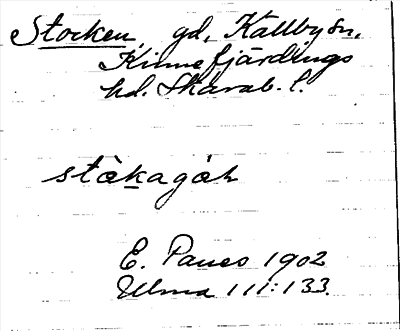 Stocken, gd, Källby sn,
Kinnefjärdings
hd. Skarab. l.
stàkagáḷ
E. Paues 1902
Ulma 111:133.